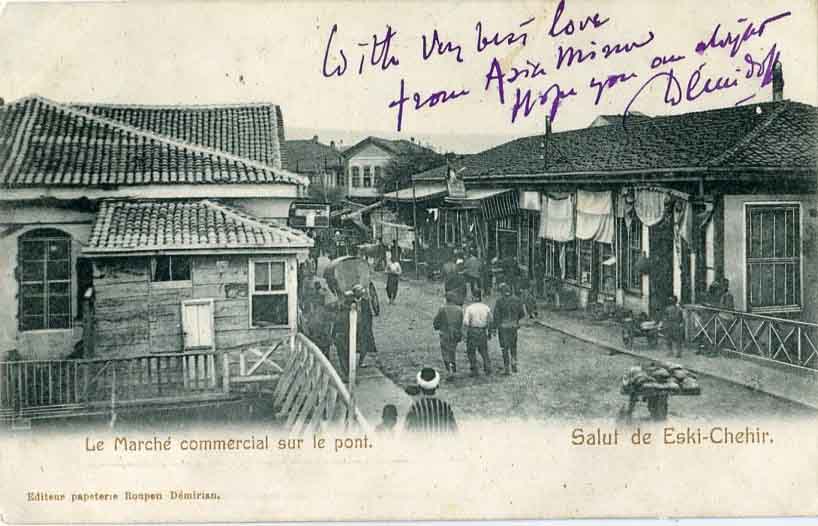 With very best love
from Asia Minor
Hope you are alright
Démidoff
Le Marché commercial sur le pont.
Salut de Eski-Chehir.
Editeur papeterie Roupen Démirian.